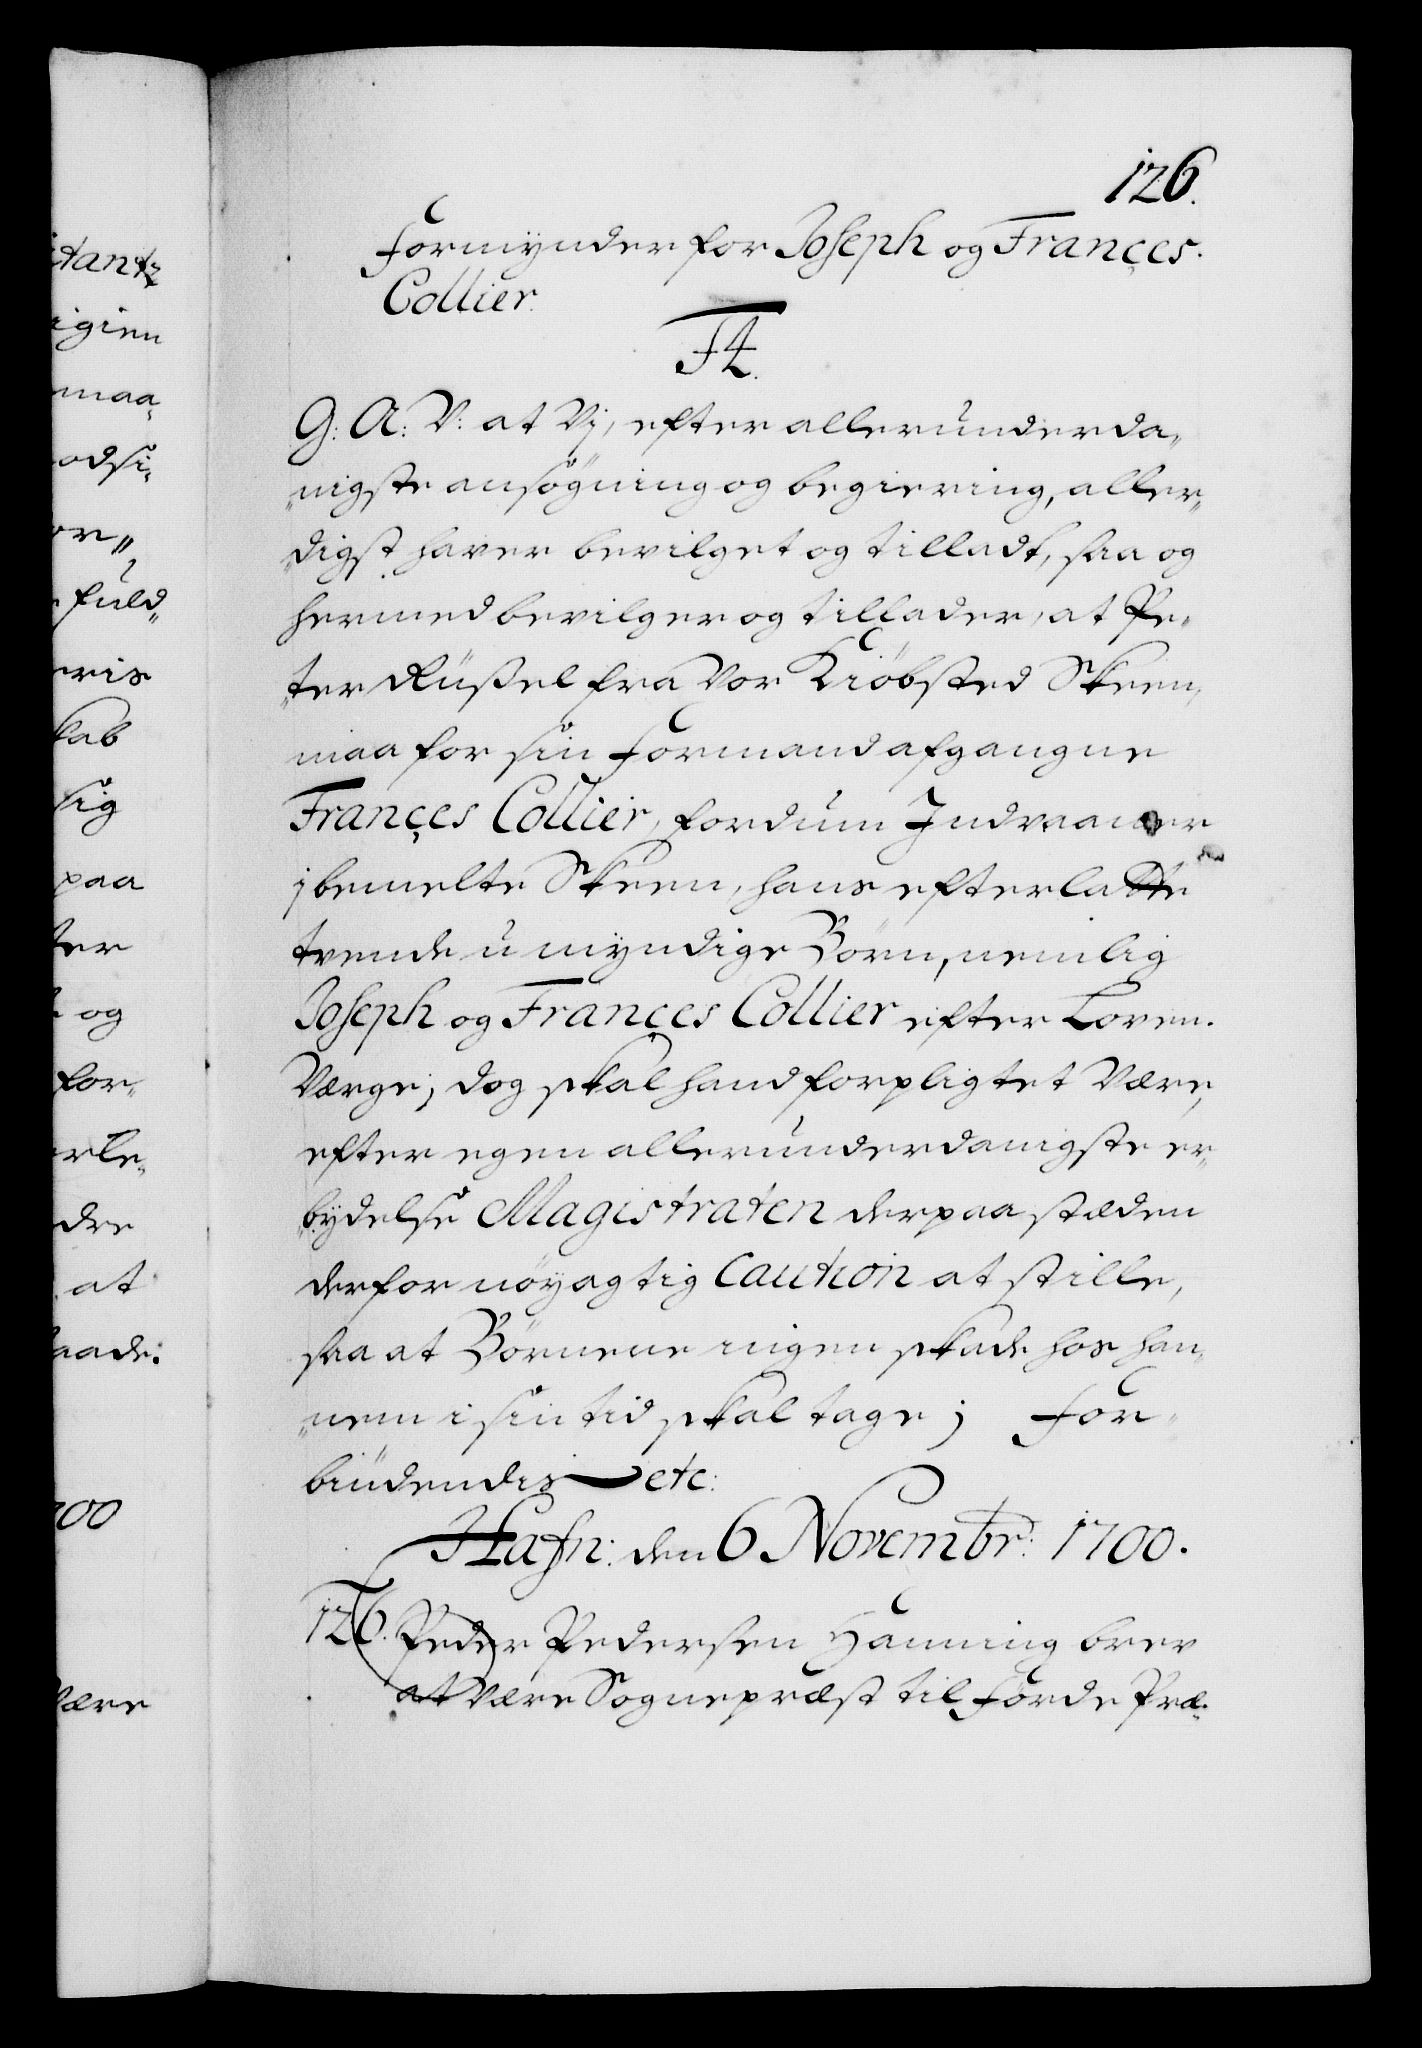 126.
Formynder for Joseph og Françes
Collier.
F4.
G: A: V: at Vj, efter allerunderda„
„nigste ansøgning og begiering, aller„
„digst haver bevilget og tilladt, saa og
hermed bevilger og tillader, at Pe„
„ter Rüssel fra Vor Kiøbsted Skeen,
maa for sin Formand afgangne
Françes Collier, fordum Indvaaner
j bemelte Skeen, hans efterladte
tvende umyndige Børn, nemlig
Joseph og Françes Collier efter Loven
Værge; dog skal hand forpligtet Være,
efter egen allerunderdanigste er„
„bydelse Magistraten derpaa stæden
derfor nøyagtig Caution at stille,
saa at Børnene ingen skade hos han„
„nem i sin tid skal tage; For„
biudendis etc:
Hafn: den 6 Novembr: 1700.
126. Peder Pedersen Hanning brev
at Være Sognepræst til Førde Præ„
itantz
igien
maa„
odsi„
or„
fuld„
eris
kab
sig
paa
ter
og
for„
erle„
dre
at
aade.
700
Være